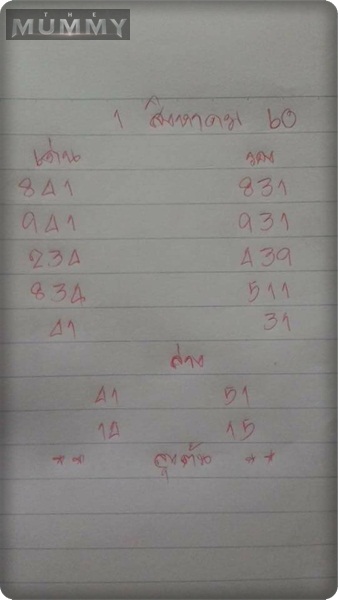 THE
MUMMY
1 สิงหาคม 60
เด่น รอง
841 831
941 931
234 439
834 511
41 31
ล่าง
41 51
14 15
** **